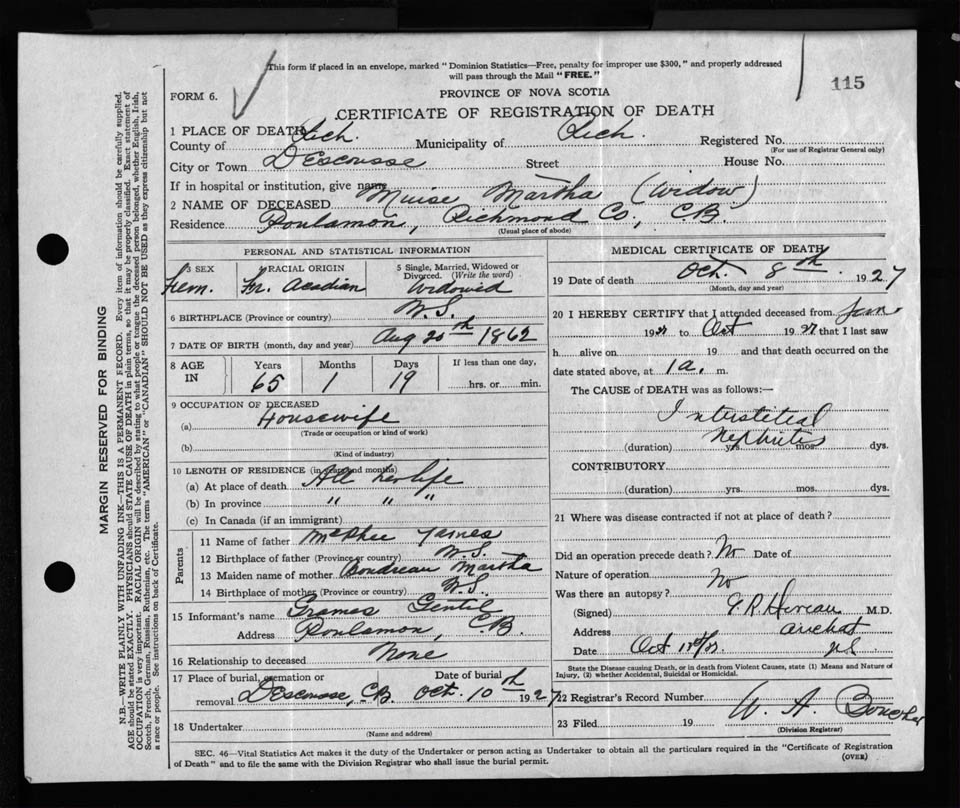 This form if placed in an envelope, marked " Dominion Statistics—Free, penalty for improper use $300, " and properly addressed
will pass through the Mail " FREE. "
115
FORM 6.
PROVINCE OF NOVA SCOTIA
CERTIFICATE OF REGISTRATION OF DEATH
1 PLACE OF DEATH
County of Rich. Municipality of Rich. Registered No.
(For use of Registrar General only)
City or Town D'Escousse Street House No.
If in hospital or institution, give name
2 NAME OF DECEASED Muise Martha (Widow)
Residence Poulamon, Richmond Co., C.B.
(Usual place of abode)
PERSONAL AND STATISTICAL INFORMATION
3 SEX Fem.
RACIAL ORIGIN Fr. Acadian
5 Single, Married, Widowed or Divorced. (Write the word) Widowed
6 BIRTHPLACE (Province or country) N.S.
7 DATE OF BIRTH (month, day and year) Aug 20th 1862
8 AGE IN Years 65 Months 1 Days 19 If less than one day, hrs. or min.
9 OCCUPATION OF DECEASED
(a) Housewife
(Trade or occupation or kind of work)
(b)
(Kind of industry)
10 LENGTH OF RESIDENCE (in years and months)
(a) At place of death All her life
(b) In province " " "
(c) In Canada (if an immigrant)
Parents
11 Name of father McPhee James
12 Birthplace of father (Province or country) N.S.
13 Maiden name of mother Boudreau Martha
14 Birthplace of mother (Province or country) N.S.
15 Informant's name Gentil
Address Poulamon, C.B.
16 Relationship to deceased None
17 Place of burial, cremation or removal D'Escousse, C.B. Date of burial Oct. 10th 1927
18 Undertaker
(Name and address)
MEDICAL CERTIFICATE OF DEATH
19 Date of death Oct. 8th 1927
(Month, day and year)
20 I HEREBY CERTIFY that I attended deceased from
19 to Oct 1927 that I last saw
h alive on 19 and that death occurred on the
date stated above, at 1 a. m.
The CAUSE of DEATH was as follows:—
Interstitial
Nephritis
(duration) yrs. mos. dys.
CONTRIBUTORY
(duration) yrs. mos. dys.
21 Where was disease contracted if not at place of death?
Did an operation precede death? No Date of
Nature of operation
Was there an autopsy? No
(Signed) M.D.
Address Arichat
Date Oct
State the Disease causing Death, or in death from Violent Causes, state (1) Means and Nature of
Injury, (2) whether Accidental, Suicidal or Homicidal.
22 Registrar's Record Number
23 Filed 19 W. A.
(Division Registrar)
SEC. 46—Vital Statistics Act makes it the duty of the Undertaker or person acting as Undertaker to obtain all the particulars required in the "Certificate of Registration
of Death" and to file the same with the Division Registrar who shall issue the burial permit.
(OVER)
MARGIN RESERVED FOR BINDING
N.B.—WRITE PLAINLY WITH UNFADING INK—THIS IS A PERMANENT RECORD. Every item of information should be carefully supplied.
AGE should be stated EXACTLY. PHYSICIANS should STATE CAUSE OF DEATH in plain terms, so that it may be properly classified. Exact statement of
OCCUPATION is very important. RACIAL ORIGIN will be described by stating to what people or tongue the deceased person belonged, whether English, Irish,
Scotch, French, German, Russian, Ruthenian, etc. The terms "AMERICAN" or "CANADIAN" SHOULD NOT BE USED as they express citizenship but not
a race or people. See instructions on back of Certificate.